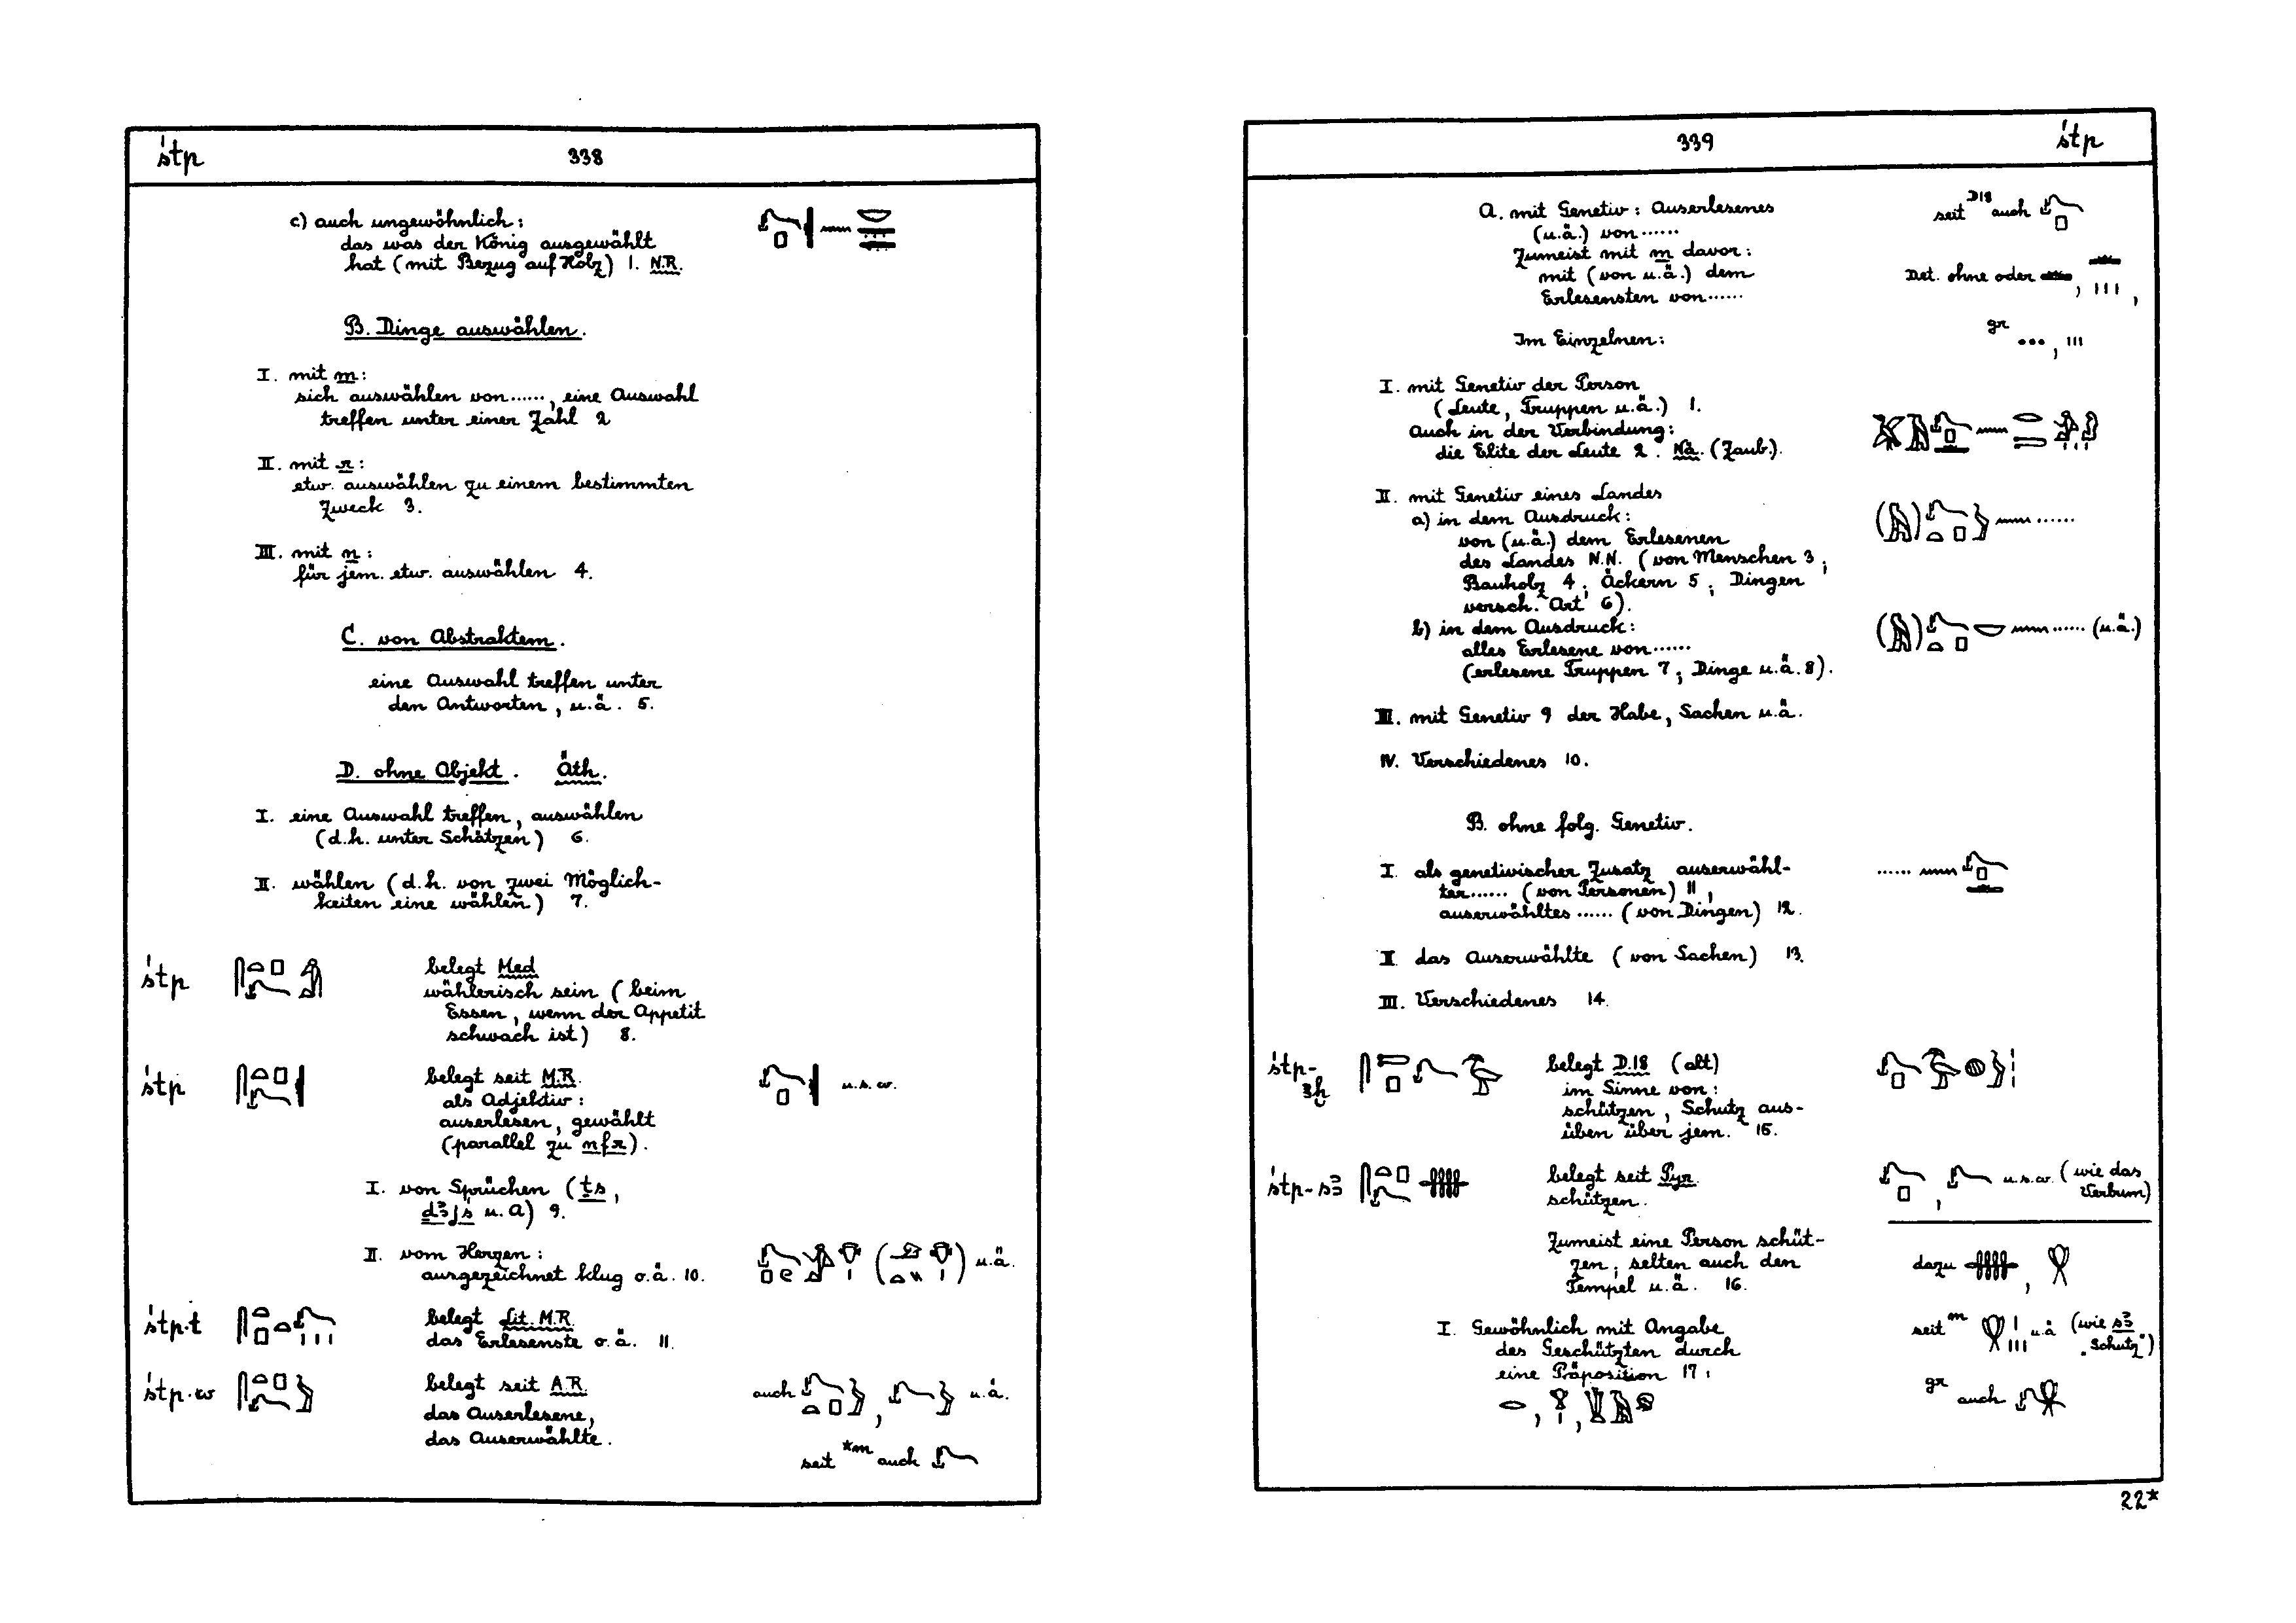 śtp 338
c) auch ungewöhnlich:
das was der König ausgewählt
hat (mit Bezug auf Holz) 1. N.R.
B. Dinge auswählen.
I. mit m:
sich auswählen von ......, eine Auswahl
treffen unter einer Zahl 2
II. mit r:
etw. auswählen zu einem bestimmten
Zweck 3.
III. mit n:
für jem. etw. auswählen 4.
C. von Abstraktem.
eine Auswahl treffen unter
den Antworten, u.ä. 5.
D. ohne Objekt. Äth.
I. eine Auswahl treffen, auswählen
(d.h. unter Schätzen) 6.
II. wählen (d.h. von zwei Möglich-
keiten eine wählen) 7.
śtp belegt Med
wählerisch sein (beim
Essen, wenn der Appetit
schwach ist) 8.
śtp belegt seit M.R. u.s.w.
als Adjektiv:
auserlesen, gewählt
(parallel zu nfr).
I. von Sprüchen (ṯs,
ḏꜣjś u. a) 9.
II. vom Herzen:
ausgezeichnet klug o.ä. 10. u.ä.
śtp.t belegt Lit. M.R.
das Erlesenste o.ä. 11.
śtp.w belegt seit A.R. auch , u.ä.
das Auserlesene,
das Auserwählte.
seit *m auch
339 śtp
A. mit Genetiv: Auserlesenes seit D18 auch
(u.ä.) von ......
Zumeist mit m davor:
mit (von u.ä.) dem Det. ohne oder , ,
Erlesensten von ......
Im Einzelnen: gr ..., ııı
I. mit Genetiv der Person
(Leute, Truppen u.ä.) 1.
Auch in der Verbindung:
die Elite der Leute 2. Nä. (Zaub.).
II. mit Genetiv eines Landes
a) in dem Ausdruck: ......
von (u.ä.) dem Erlesenen
des Landes N.N. (von Menschen 3;
Bauholz 4; Äckern 5; Dingen
versch. Art 6).
b) in dem Ausdruck: ...... (u.ä.)
alles Erlesene von ......
(erlesene Truppen 7; Dinge u.ä. 8).
III. mit Genetiv 9 der Habe, Sachen u.ä.
IV. Verschiedenes 10.
B. ohne folg. Genetiv.
I. als genetivischer Zusatz auserwähl- ......
ter ...... (von Personen) 11,
auserwähltes ...... (von Dingen) 12.
II das Auserwählte (von Sachen) 13.
III. Verschiedenes 14.
śtp- belegt D.18 (alt)
ꜣḫ im Sinne von:
schützen, Schutz aus-
üben über jem. 15.
śtp-sꜣ belegt seit Pyr. , u.s.w. (wie das
schützen. Verbum)
Zumeist eine Person schüt-
zen; selten auch den dazu ,
Tempel u.ä. 16.
I. Gewöhnlich mit Angabe seit m u.ä (wie sꜣ
des Geschützten durch „Schutz")
eine Präposition 17:
gr auch
22*